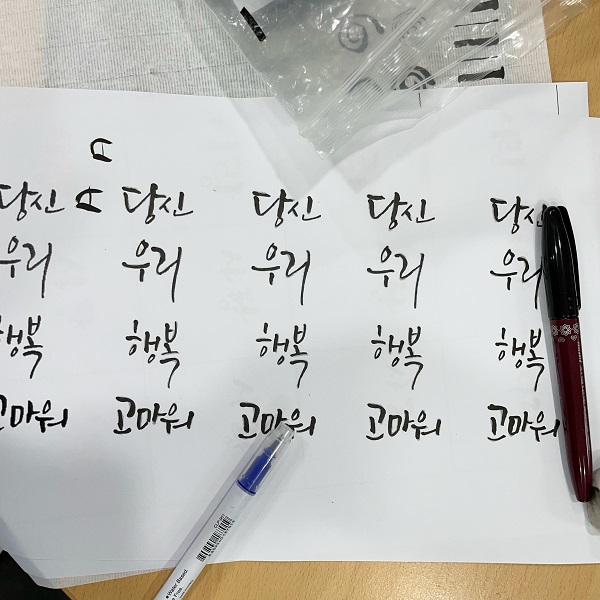 ㅂ
당신 ㅂ 당신 당신 당신 당신
우리 우리 우리 우리 우리
행복 행복 행복 행복 행복
고마워 고마워 고마워 고마워 고마워
Water Based